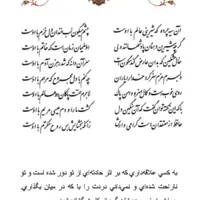 آن سیه چرده که شیرینی عالم با اوست چشم میگون لب خندان دل خرم با اوست
گرچه شیرین دهنان پادشهانند ولی او سلیمان زمان است که خاتم با اوست
خال مشکین که بدان عارض گندمگون است سر آن دانه که شد رهزن آدم با اوست
دلبرم عزم سفر کرد خدا را یاران چه کنم با دل مجروح که مرهم با اوست
روی خوب است و کمال هنر و دامن پاک لاجرم همت پاکان دو عالم با اوست
با که این نکته توان گفت که آن سنگین دل کشت ما را و دم عیسی مریم با اوست
حافظ از معتقدان است گرامی دارش زانکه بخشایش بس روح مکرم با اوست
به کسی علاقه‌داری که بر اثر حادثه‌ای از تو دور شده است و تو
ناراحت شده‌ای و نمی‌دانی دردت را با که در میان بگذاری